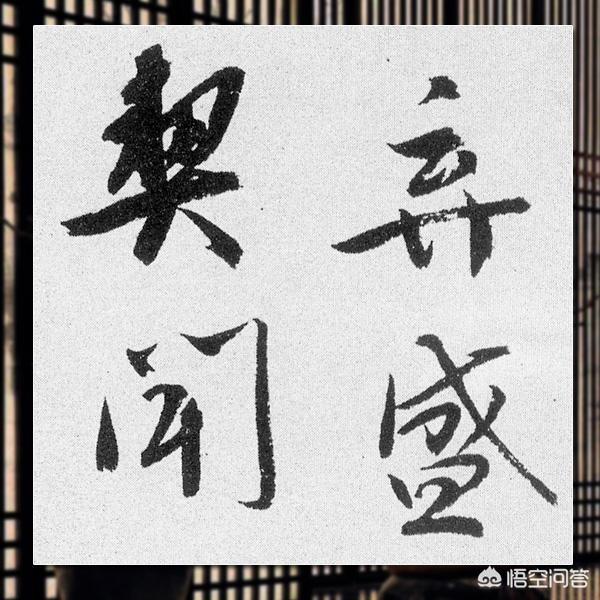 弃盛
契闻
悟空问答